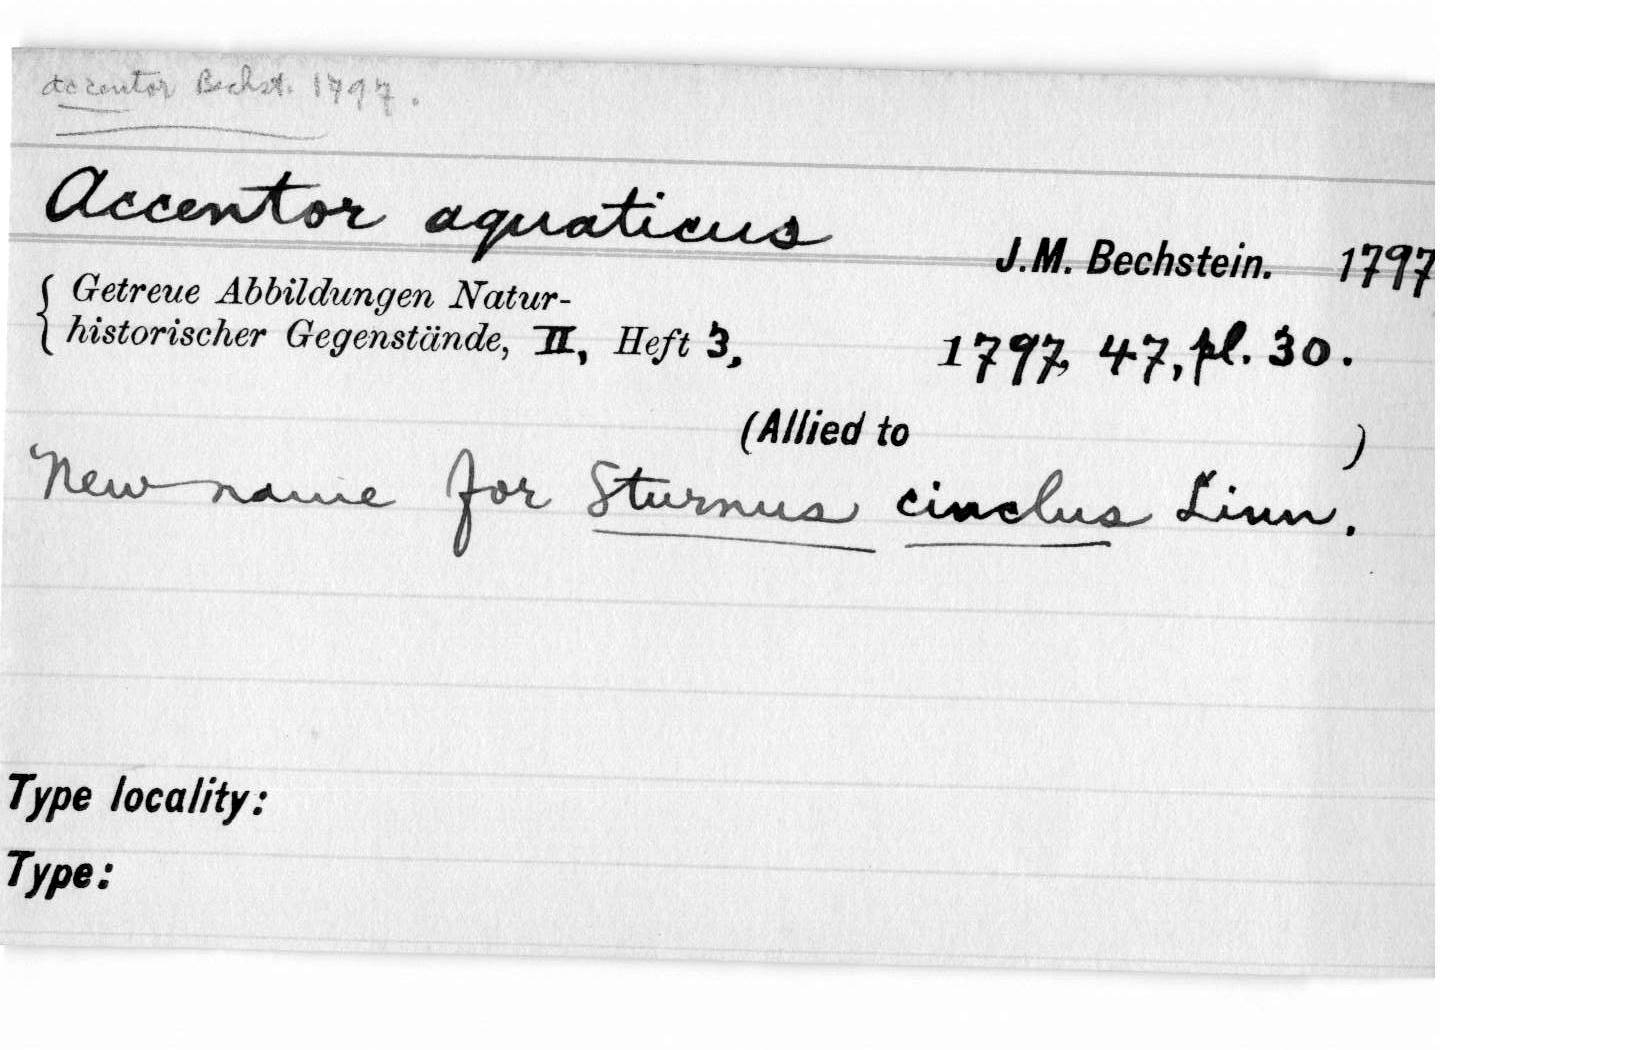 Accentor Bechst. 1797.
Accentor aquaticus
J.M. Bechstein. 1797
{ Getreue Abbildungen Natur-
historischer Gegenstände, II, Heft 3, 1797, 47, pl. 30.
(Allied to )
New name for Sturnus cinclus Linn.
Type locality:
Type: